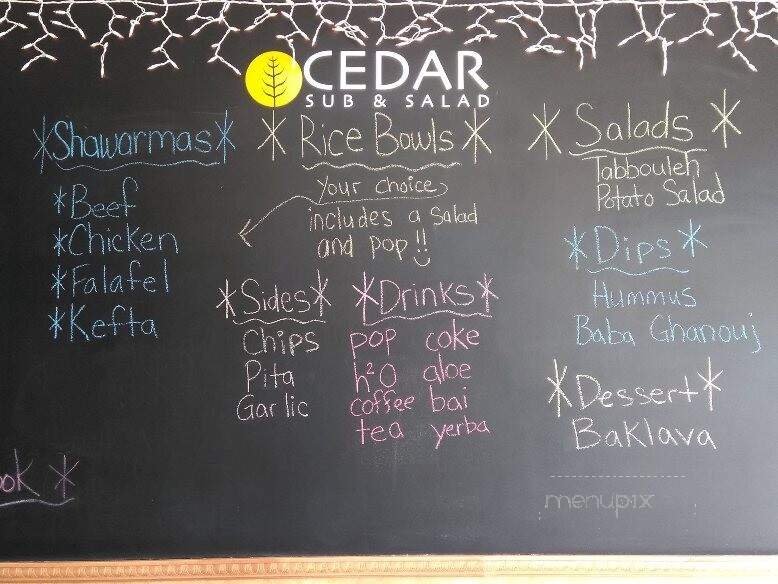 CEDAR
SUB & SALAD
*Shawarmas*
*Beef
*Chicken
*Falafel
*Kefta
*Rice Bowls*
Your choice
includes a salad
and pop!!
*Sides*
Chips
Pita
Garlic
*Drinks*
pop coke
h²O aloe
coffee bai
tea yerba
*Salads*
Tabbouleh
Potato Salad
*Dips*
Hummus
Baba Ghanouj
*Dessert*
Baklava
menupix